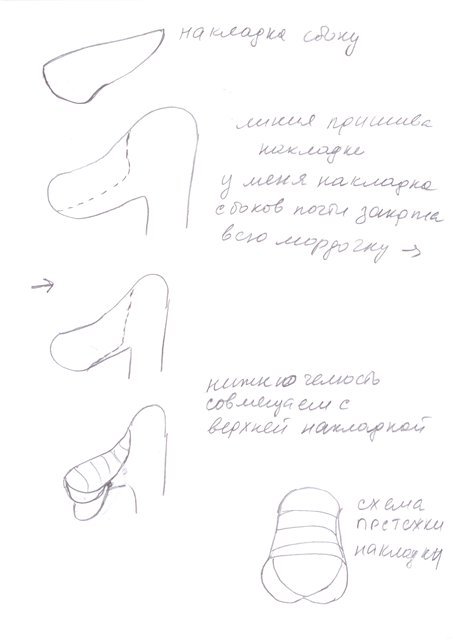 накладка сбоку
линия пришива
накладки
у меня накладка
с боков почти закрыта
всю мордочку →
нижнюю челюсть
совмещаем с
верхней накладкой
схема
простежки
накладки